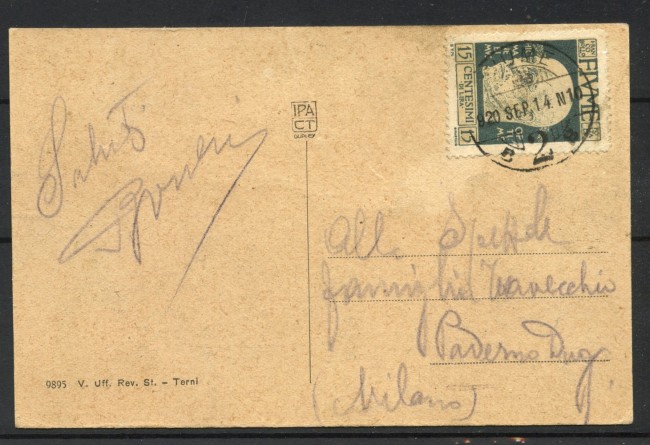 Saluti
IPA
CT
15 CENTESIMI 15
FIUME
FIUME
920 SEP. 14. N10
B 2
Alla Spett.le
famiglia Travecchio
Paderno Dug.
(Milano)
9895 V. Uff. Rev. St. - Terni